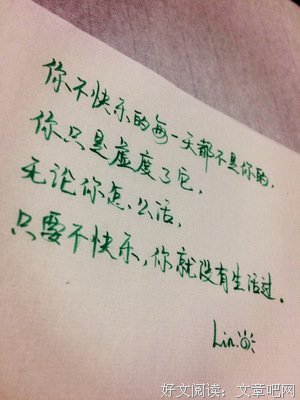 你不快乐的每一天都不是你的.
你只是虚度了它.
无论你怎么活,
只要不快乐,你就没有生活过。
Lin.
好文阅读：文章吧网